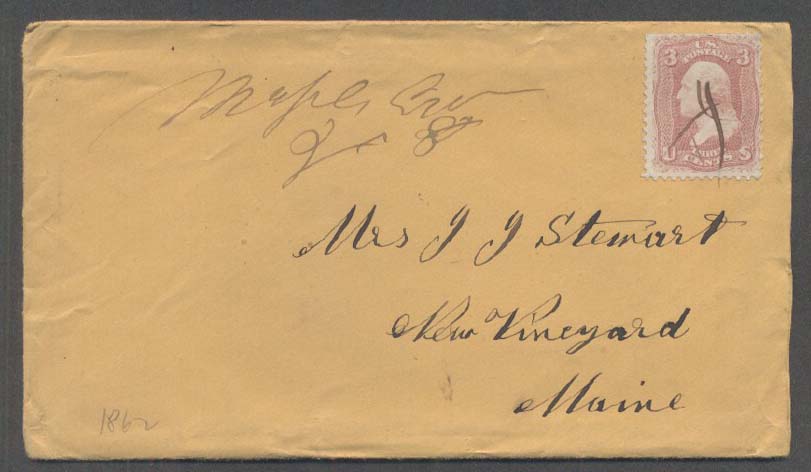 3 U.S. 3
POSTAGE
U THREE S
CENTS
Maple
Mrs J J Stewart
New Vineyard
Maine
1862